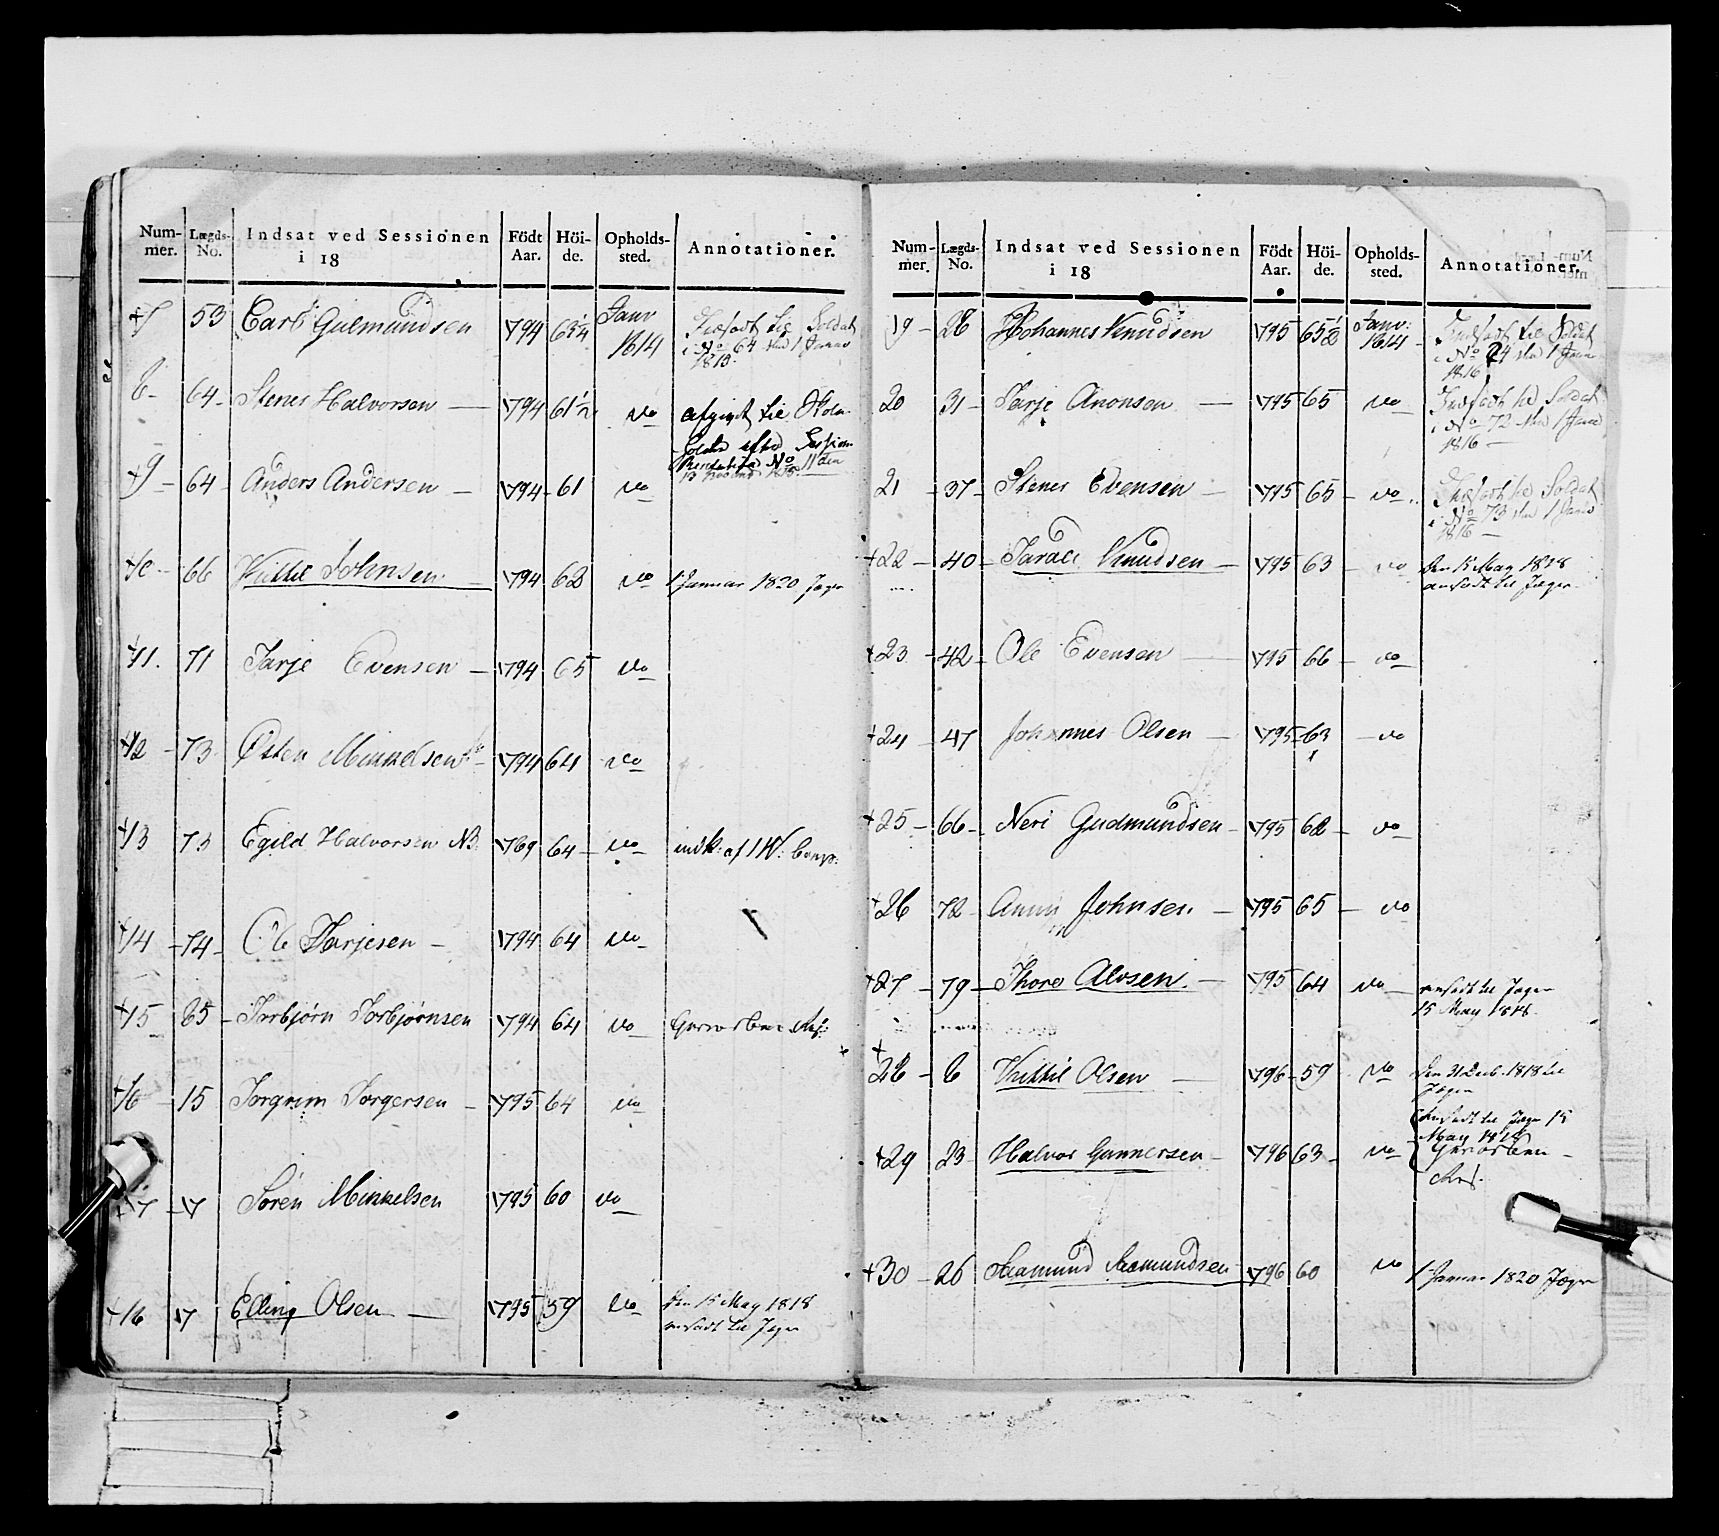 Num-mer. Lægds-No. Indsat ved Sessionen i 18 Födt Aar. Höi-de. Opholds-sted. Annotationer.
+7 53 Carl Gulmundsen 1794 63 1/4 Janv 1814 Indsadt til Soldat
i No 64 den 1 Janv
1815.
8 64 Stener Halvorsen 1794 61 1/2 do afgivet til
Session
No 11 den
+9 64 Anders Andersen 1794 61 do
+10 66 Kittil Johnsen 1794 62 do 1 Januar 1820 Jæger
+11. 71 Tarje Evensen 1794 65 do
+12 73 Østen Mikkelsen 1794 64 do
+13 73 Egild Halvorsen NB. 1769 64 do indk: af 1 W: Comp:
+14 74 Ole Tarjesen 1794 64 do
+15 85 Torbjørn Torbjørnsen 1794 64 do Gevorben
+16 15 Torgrim Torgersen 1795 64 do
+17 17 Søren Mikkelsen 1795 60 do
+18 17 Elling Olsen 1795 59 do Den 15 May 1818
ansadt til Jæger
Num-mer. Lægds-No. Indsat ved Sessionen i 18 Födt Aar. Höi-de. Opholds-sted. Annotationer.
19 28 Johannes Knudsen 1795 65 1/2 Janv: 1814 Indsadt til Soldat
i No 24 den 1 Janv
1816
20 31 Tarje Anonsen 1795 65 do Indsadt til Soldat
i No 72 den 1 Janv
1816
21 37 Stener Evensen 1795 65 do Indsadt til Soldat
i No 73 den 1 Janv
1816
+22 40 Tarald Knudsen 1795 63 do Den 15 May 1818
ansadt til Jæger
+23 42 Ole Evensen 1795 66 do
+24 47 Johannes Olsen 1795 63 do
+25 66 Neri Gudmundsen 1795 62 do
+26 72 Johnsen 1795 65 do
+27 79 Thore Alvsen 1795 64 do ansadt til Jæger
15 May 1818.
+28 6 Kittil Olsen 1796 59 do Den 31 Decb. 1818 til
Jæger
+29 23 Halvor Gunnersen 1796 63 do Ansadt til Jæger 15
May 1818
Gevorben
+30 26 Aamund Aamundsen 1796 60 do 1 Januar 1820 Jæger